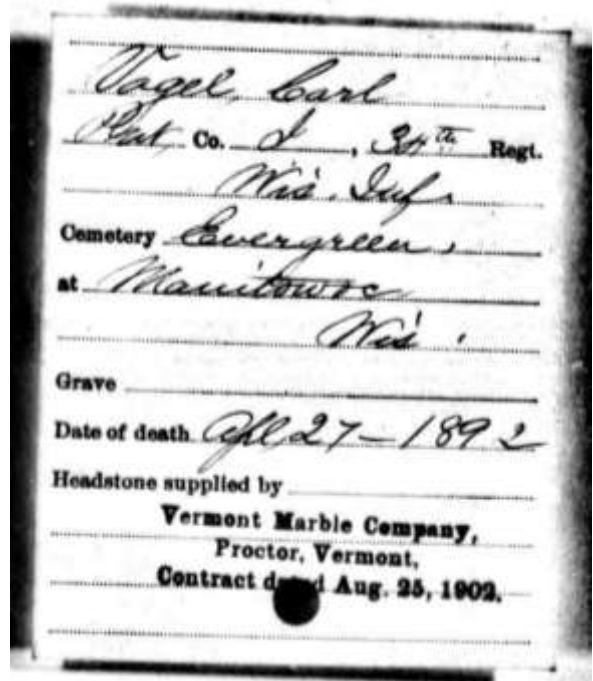 Vogel, Carl
Pvt, Co. I, 34th Regt.
Wis. Inf.
Cemetery Evergreen,
at Manitowoc
Wis.
Grave
Date of death Apl 27 - 1892
Headstone supplied by
Vermont Marble Company,
Proctor, Vermont,
Contract dated Aug. 25, 1902.